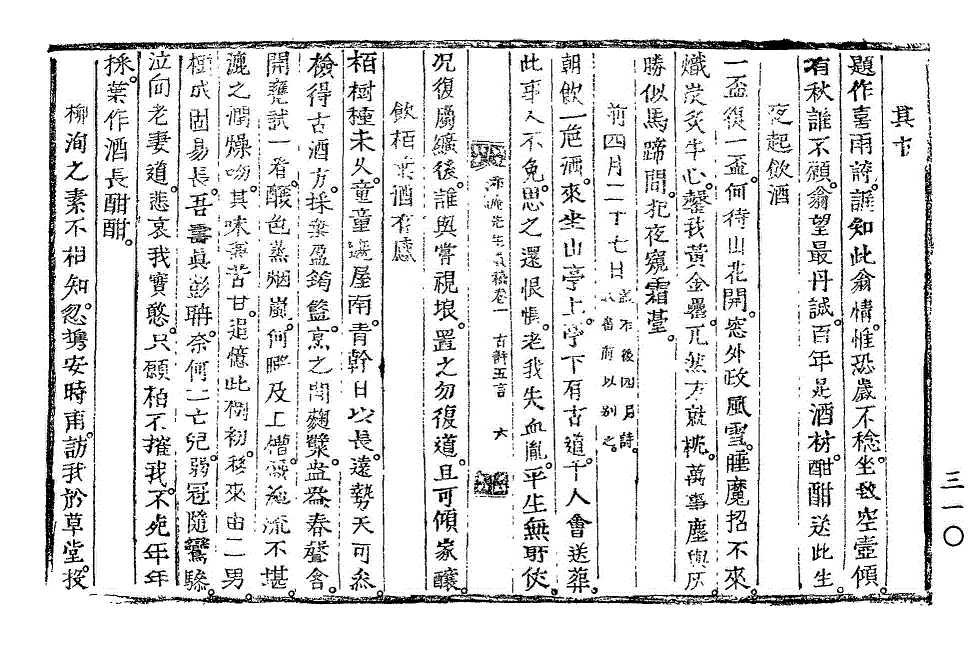 其七
題作喜雨詩誰知此翁情惟恐歲不稔坐致空壺傾
有秋誰不願翁望最丹誠百年是酒材酣酣送此生
夜起飲酒
一盃復一盃何待山花開窓外政風雪睡魔招不來
熾炭炙牛心罄我黃金罍兀然方就枕萬事塵與灰
勝似馬蹄間犯夜窺霜臺
前四月二十七日 盖有後四月詩故書前以別之
朝飲一巵酒來坐山亭上亭下有古道千人會送葬
此事人不免思之還悵悵老我失血胤平生無所仗
先生 稿卷一 古詩五言 六
况復屬纊後誰與嘗視埌置之勿復道且可傾家釀
飲栢葉酒有感
栢樹種未久童童遶屋南青幹日以長遠勢天可叅
檢得古酒方採葉盈筠籃烹之間麴糵盎發春醟含
開甕試一看醲色蒸烟嵐何暇及上槽 流不堪
漉之潤燥吻其味 苦甘追憶此樹初移來由二男
樹成固易長吾壽眞彭聃奈何二亡兒弱冠隨鸞驂
泣向老妻道悲哀我實憨只願栢不摧我不死年年
採葉作酒長酣酣
柳洵之素不相知忽携安時甫訪我於草堂投
三一〇